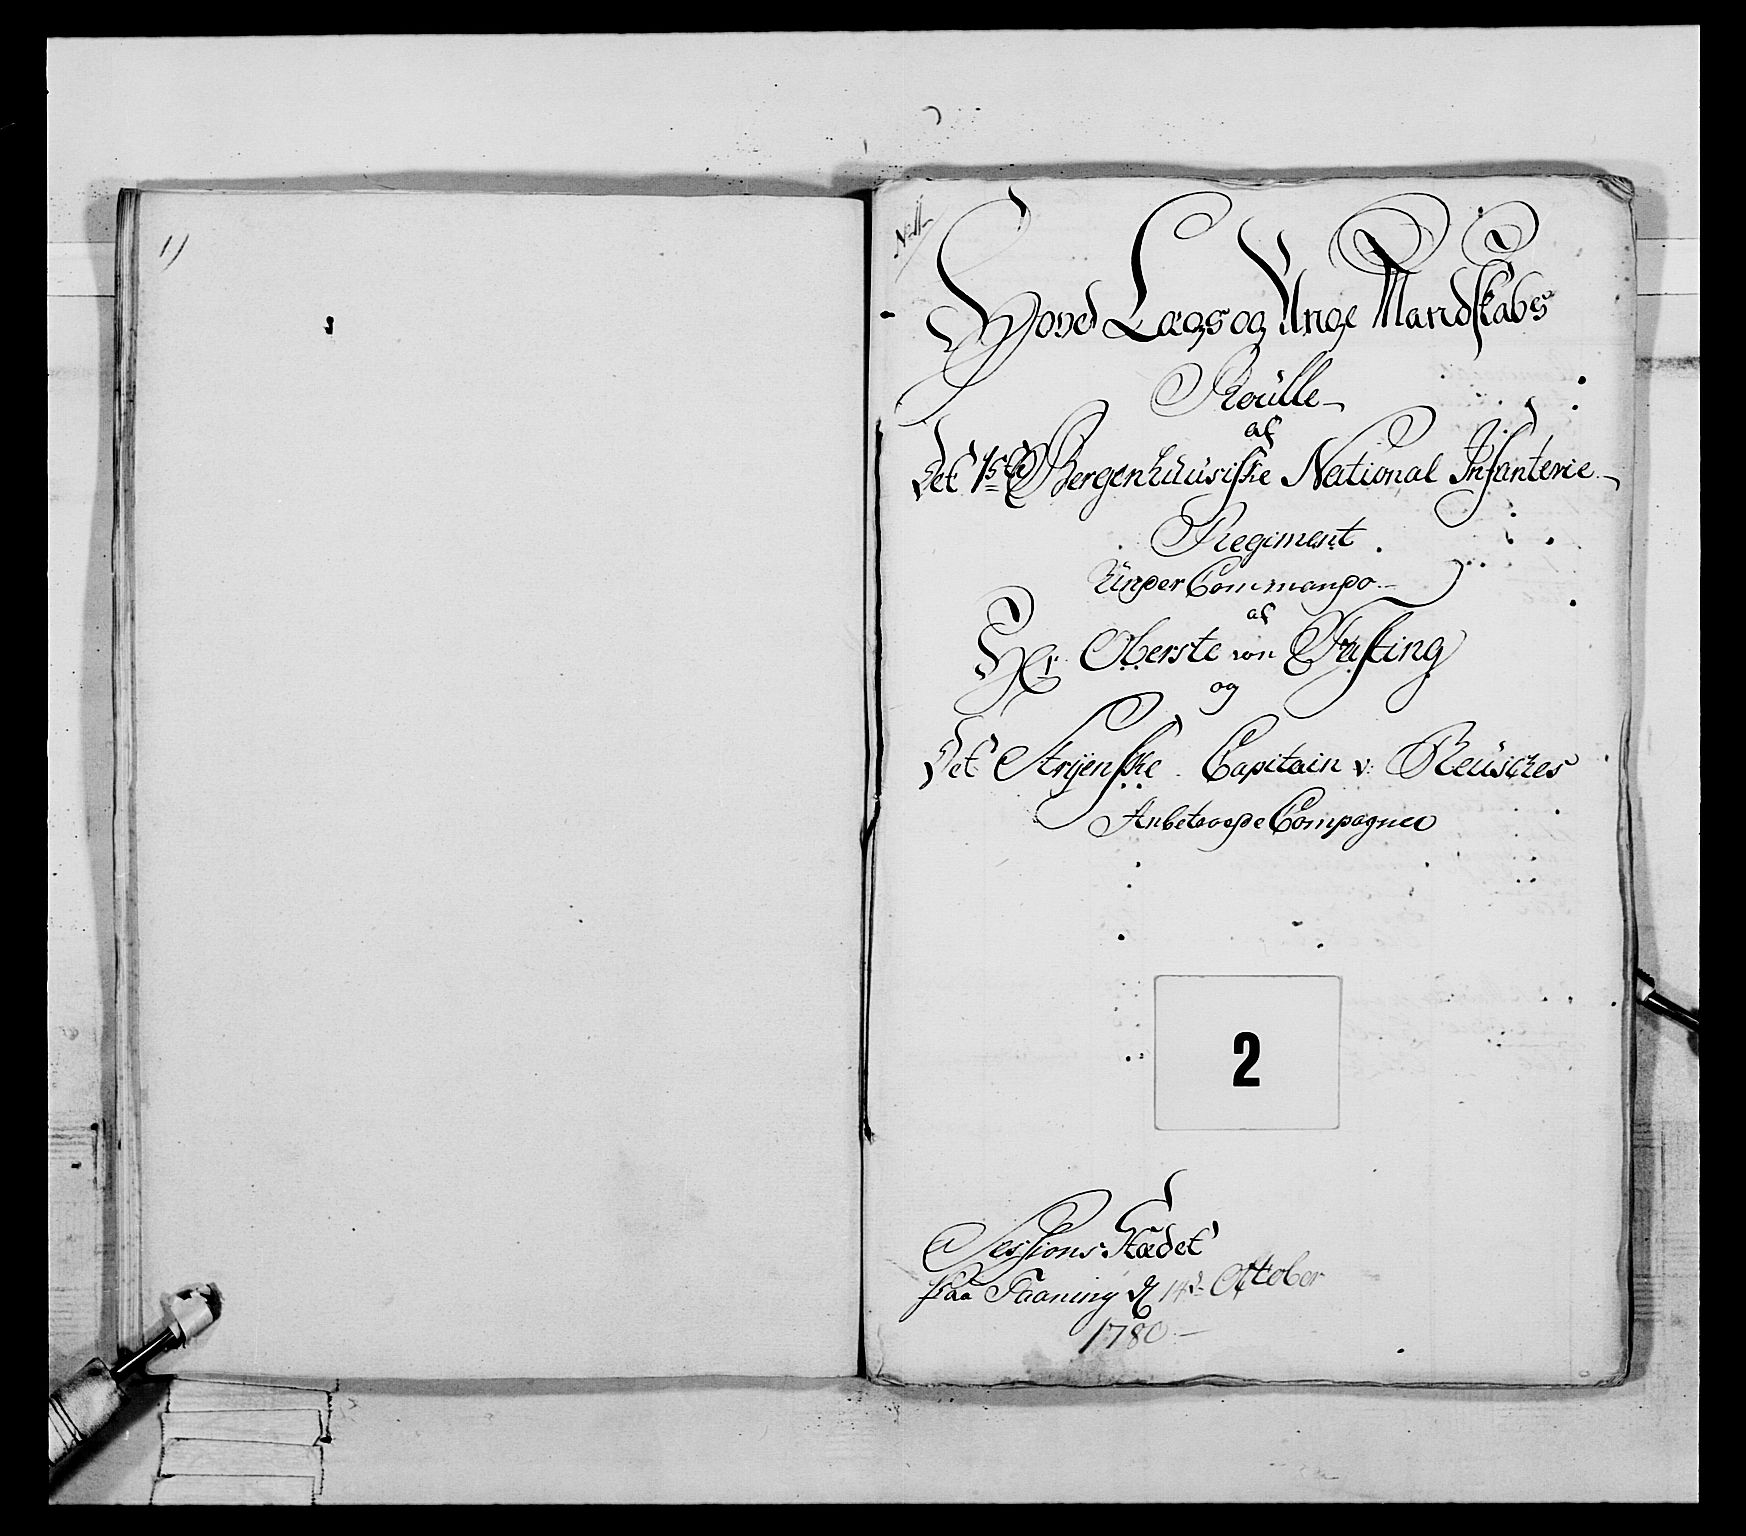 1)
No 1
Hoved Lægs og Unge Mandskabs
Roülle
af
Det 1ste Bergenhuusiske National Infanterie
Regiment
Under Commando
af
Hr Oberste von Fasting
og
Det Strijenske Capitain v: Reüsches
Anbetroede Compagnie
2
Sessions Stædet
paa Faaning d 14de October
1780